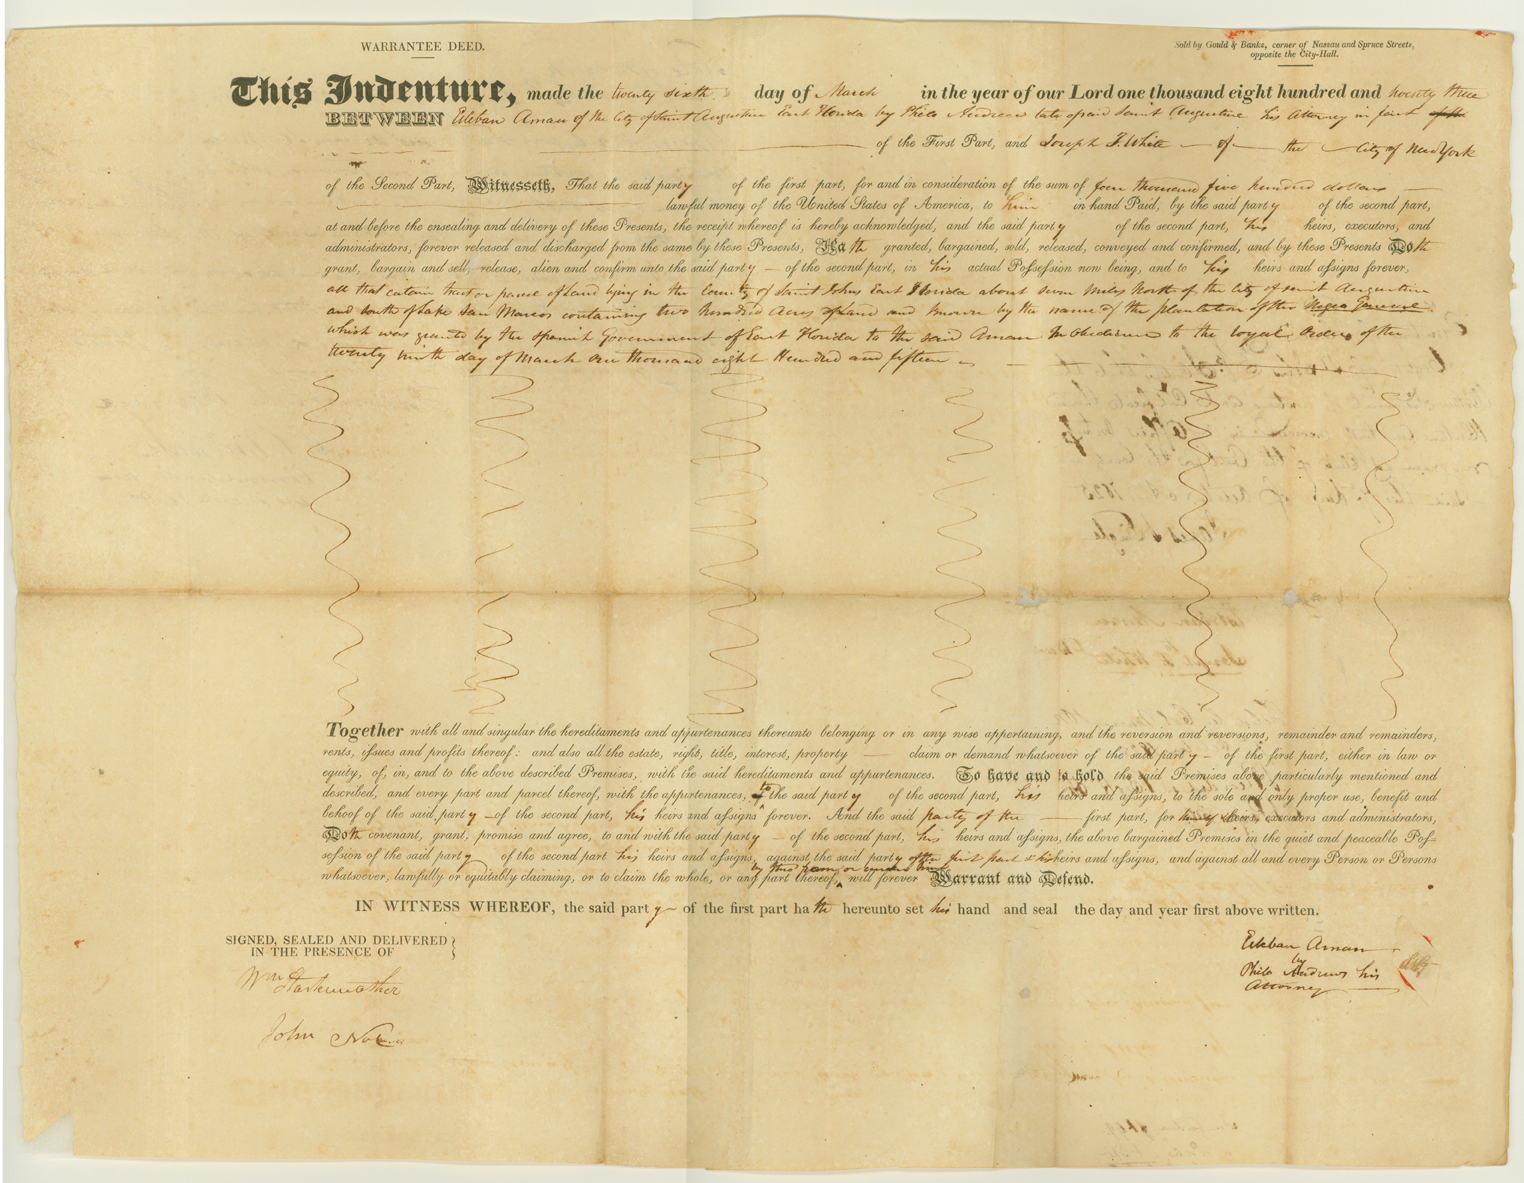 WARRANTEE DEED.
Sold by Gould & Banks, corner of Nassau and Spruce Streets,
opposite the City-Hall.
This Indenture, made the twenty sixth day of March in the year of our Lord one thousand eight hundred and twenty three
BETWEEN Esteban Arnau of the City of Saint Augustine East Florida by Philo Andrews late of said Saint Augustine his Attorney in fact of the
of the First Part, and Joseph F. White of the City of New York
of the Second Part, Witnesseth, That the said party of the first part, for and in consideration of the sum of four thousand five hundred dollars
lawful money of the United States of America, to him in hand Paid, by the said party of the second part,
at and before the ensealing and delivery of these Presents, the receipt whereof is hereby acknowledged, and the said party of the second part, his heirs, executors, and
administrators, forever released and discharged from the same by these Presents, Hath granted, bargained, sold, released, conveyed and confirmed, and by these Presents Doth
grant, bargain and sell, release, alien and confirm unto the said party of the second part, in his actual Possession now being, and to his heirs and assigns forever,
all that certain tract or parcel of Land lying in the County of Saint Johns East Florida about seven miles North of the City of saint Augustine
and south of Lake San Marcos containing two hundred Acres of land and known by the name of the plantation of the
which was granted by the Spanish Government of East Florida to the said Arnau In Obedience to the royal Order of the
twenty ninth day of March one thousand eight Hundred and fifteen
Together with all and singular the hereditaments and appurtenances thereunto belonging or in any wise appertaining, and the reversion and reversions, remainder and remainders,
rents, issues and profits thereof: and also all the estate, right, title, interest, property claim or demand whatsoever of the said party of the first part, either in law or
equity, of, in, and to the above described Premises, with the said hereditaments and appurtenances. To have and to hold the said Premises above particularly mentioned and
described, and every part and parcel thereof, with the appurtenances, to the said party of the second part, his heirs and assigns, to the sole and only proper use, benefit and
behoof of the said party of the second part, his heirs and assigns forever. And the said party of the first part, for heirs, executors and administrators,
Doth covenant, grant, promise and agree, to and with the said party of the second part, his heirs and assigns, the above bargained Premises in the quiet and peaceable Pos-
session of the said party of the second part his heirs and assigns, against the said party of the first part & his heirs and assigns, and against all and every Person or Persons
whatsoever, lawfully or equitably claiming, or to claim the whole, or any part thereof, will forever Warrant and Defend.
IN WITNESS WHEREOF, the said party of the first part hath hereunto set his hand and seal the day and year first above written.
SIGNED, SEALED AND DELIVERED
IN THE PRESENCE OF
Wm Starkweather
John
Esteban Arnau
by
Philo Andrews his
Attorney